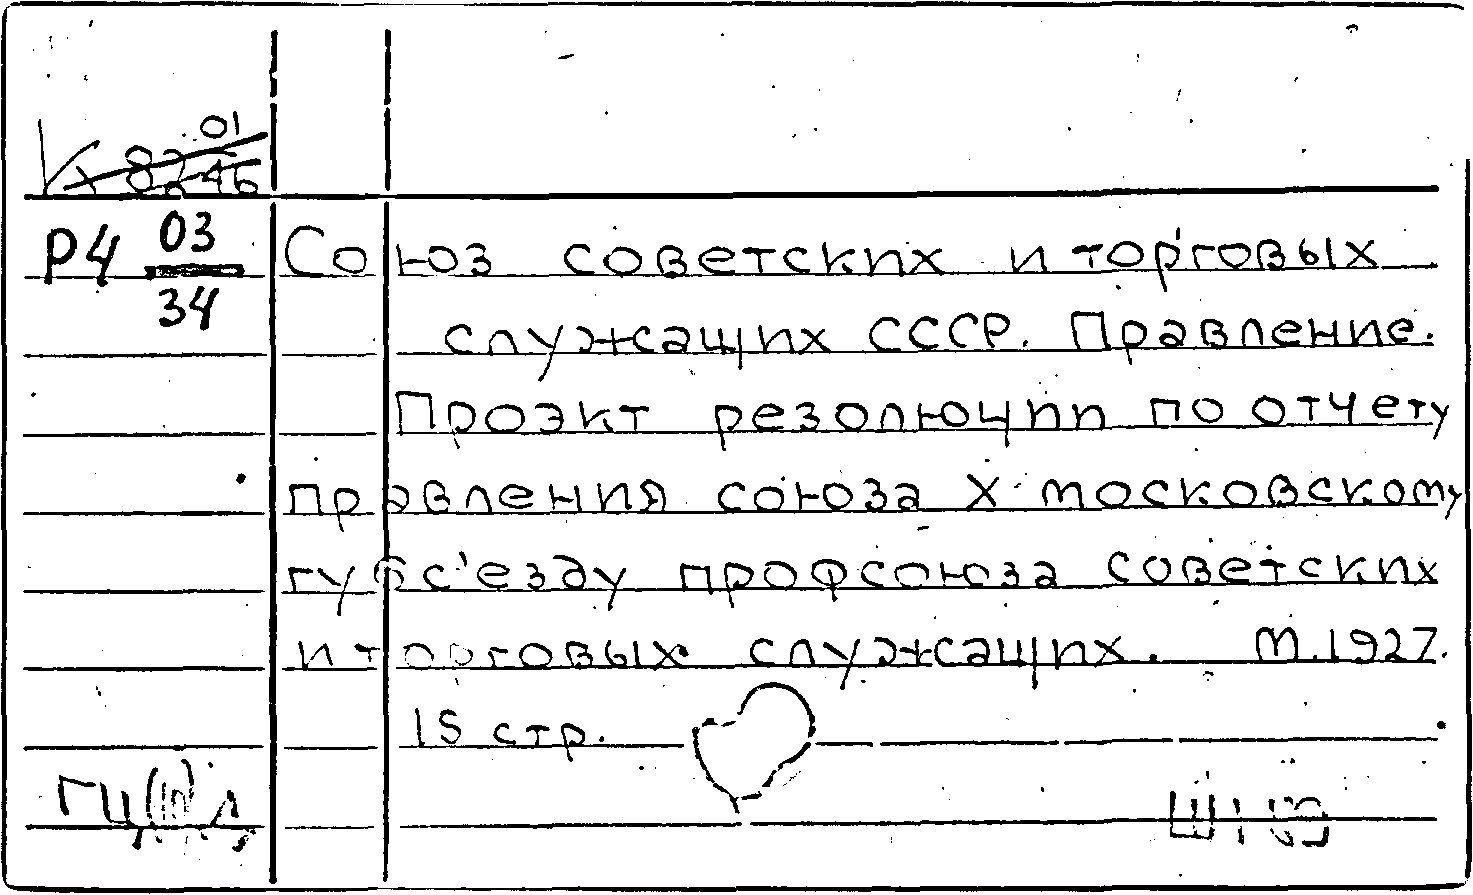 01
Р4 03
34
Союз советских и торговых
служащих СССР. Правление.
Проэкт резолюции по отчету
правления союза X московскому
губс'езду профсоюза советских
и торговых служащих. М.1927.
15 стр.